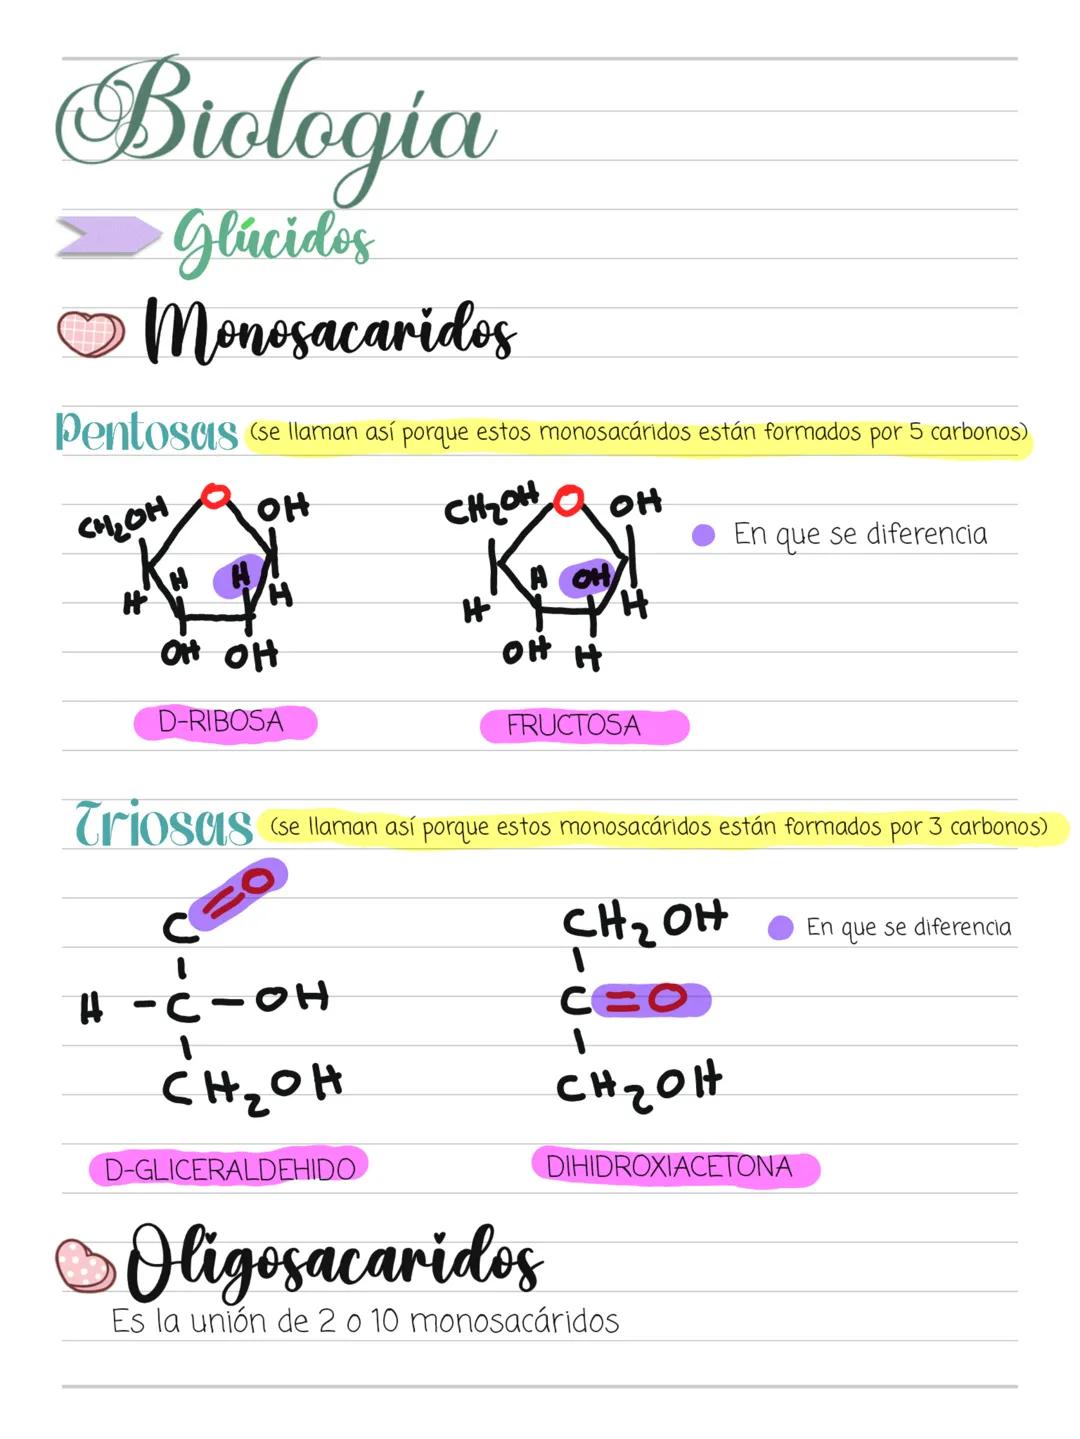 Biología
Glúcidos
Monosacaridos
Pentosas (se llaman así porque estos monosacáridos están formados por 5 carbonos)
CH₂OH O OH CH₂OH O OH
En que se diferencia
H H H H H OH H H
OH OH OH H
D-RIBOSA FRUCTOSA
Triosas (se llaman así porque estos monosacáridos están formados por 3 carbonos)
C=O CH₂OH
En que se diferencia
H -C-OH C=O
CH₂OH CH₂OH
D-GLICERALDEHIDO DIHIDROXIACETONA
Oligosacaridos
Es la unión de 2 o 10 monosacáridos